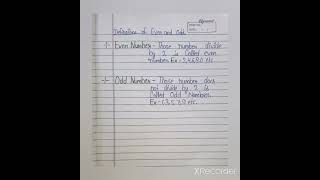 Definition of Even and Odd.
Even Number - Those number divide
by 2 is called even
number. Ex - 2,4,6,8,0 etc
Odd Number - Those number does
not divide by 2 is
called Odd Numbers.
Ex - 1,3,5,7,9 etc.
XRecorder